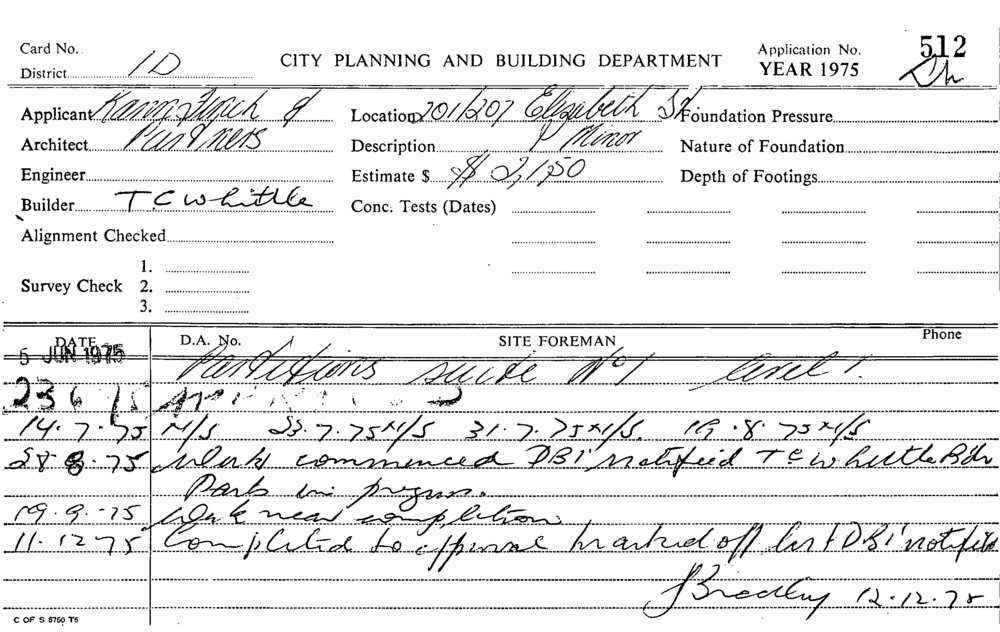 Card No.
District 1D
CITY PLANNING AND BUILDING DEPARTMENT
Application No. 512
YEAR 1975
Applicant Kann Finch &
Architect Partners
Engineer
Builder T.C Whittle
Alignment Checked
Survey Check 1.
2.
3.
Location 201/207 Elizabeth St
Description Minor
Estimate $ $ 2,150
Conc. Tests (Dates)
Foundation Pressure
Nature of Foundation
Depth of Footings
DATE D.A. No. SITE FOREMAN Phone
5 JUN 1975 Partitions suite No 1 level 1.
23 6 75
14.7.75 N/S 23.7.75 N/S 31.7.75 N/S. 19.8.75 N/S
28 8.75 Work commenced DBI notified T C Whittle Bdr
Parts in progress.
19.9.75 Work near completion
11.12 75 Completed to approval marked off list DBI notified
J Bradley 12.12.75
C OF S 6760 T6